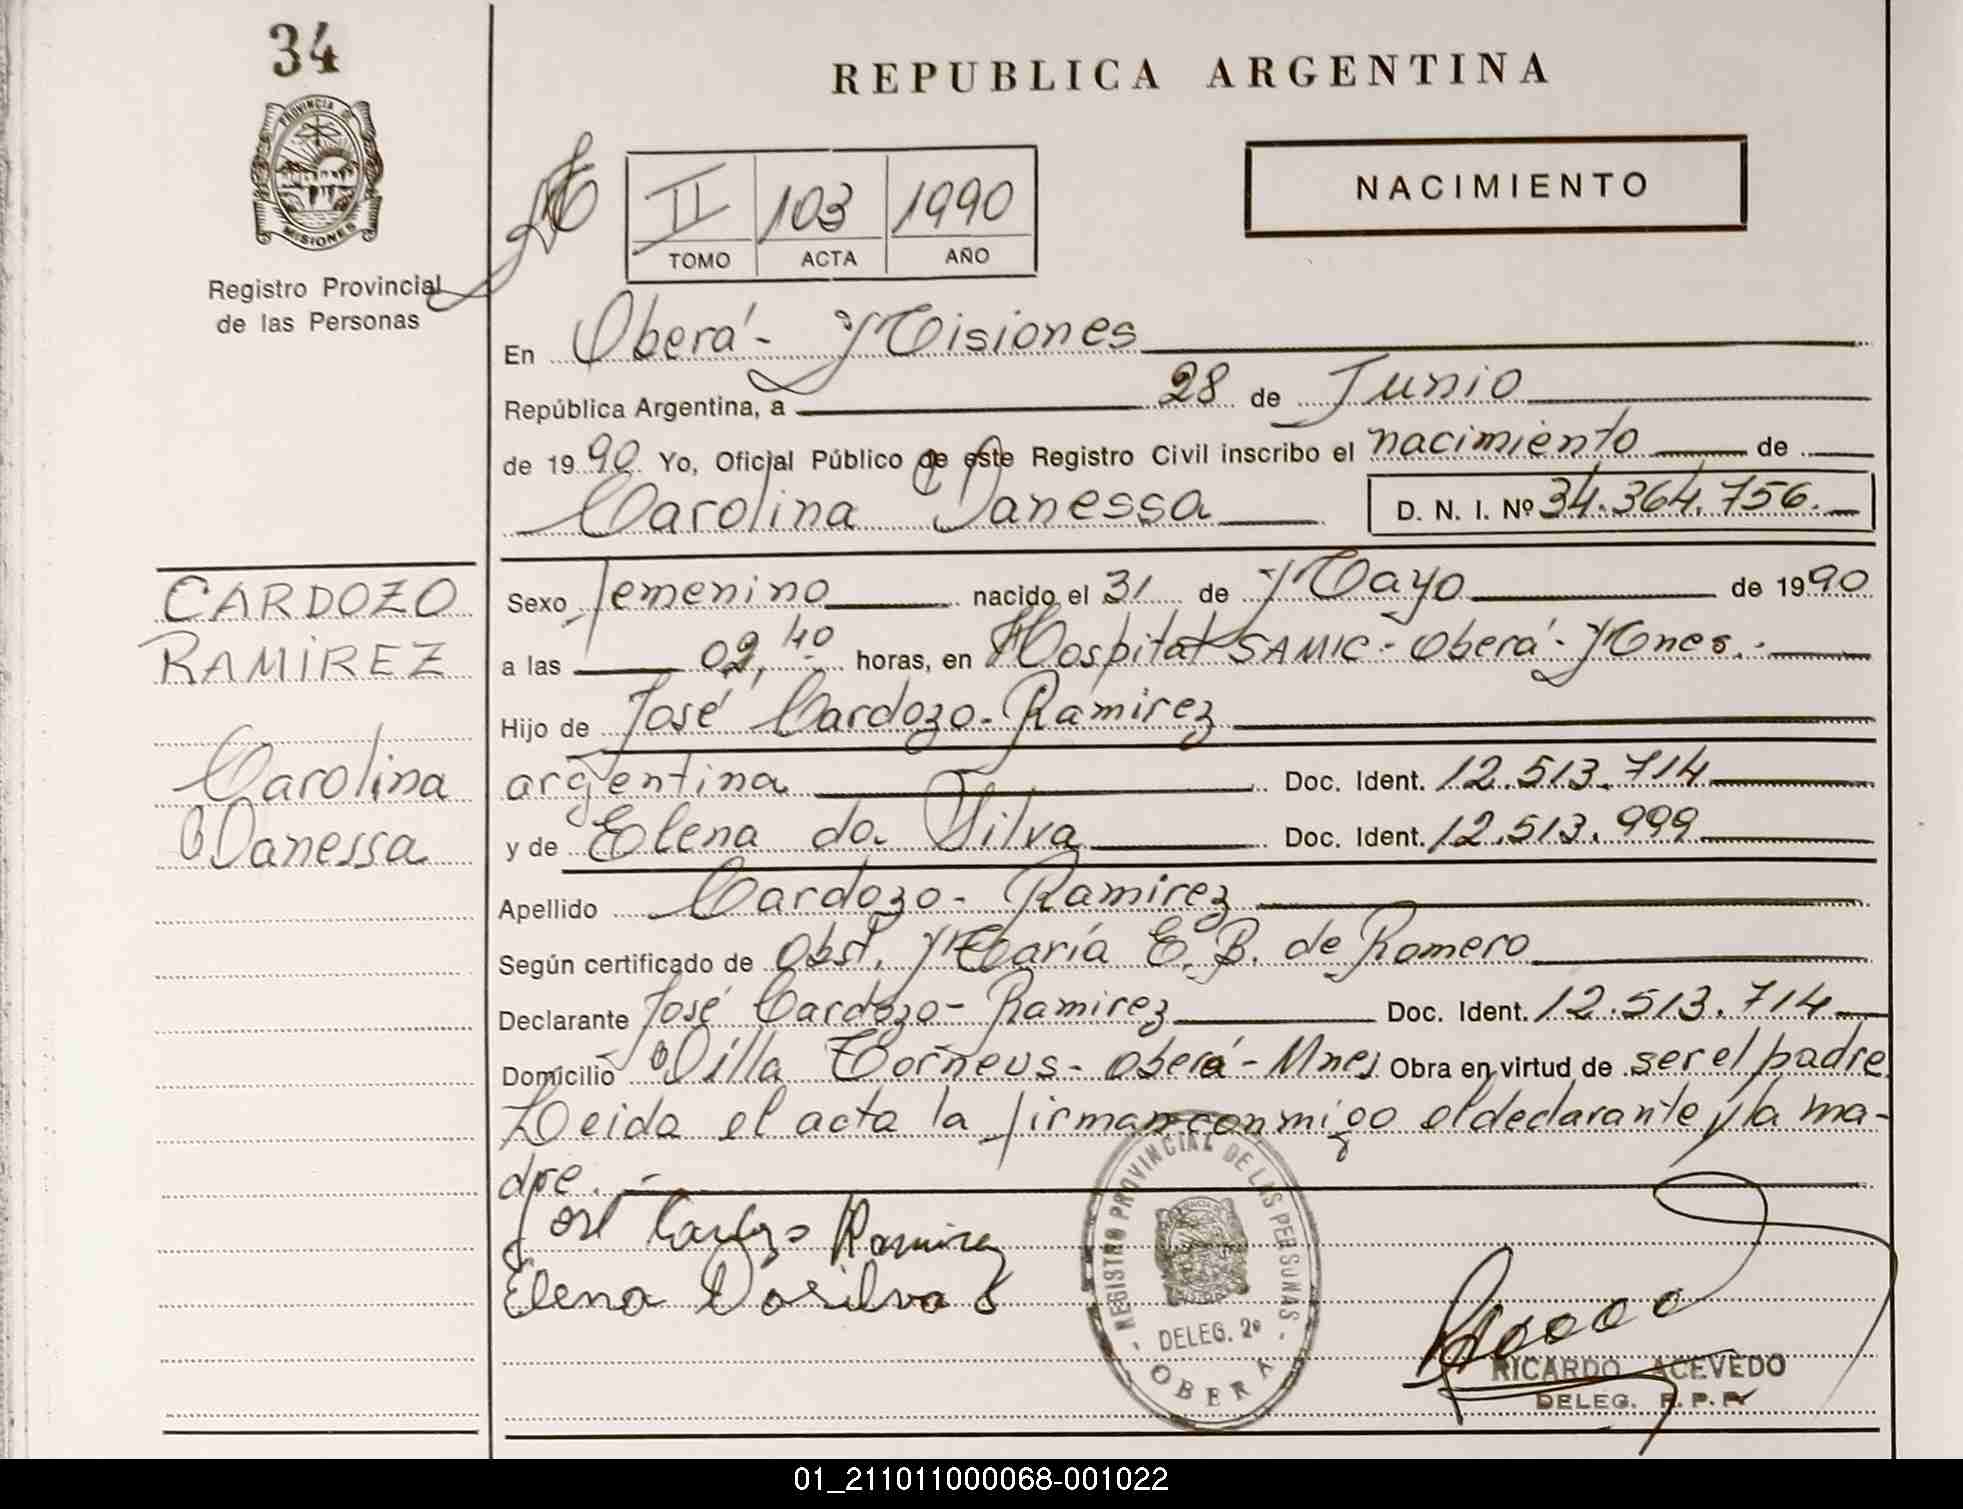 34
PROVINCIA DE
MISIONES
Registro Provincial
de las Personas
CARDOZO
RAMIREZ
Carolina
Vanessa
REPUBLICA ARGENTINA
II 103 1990
TOMO ACTA AÑO
NACIMIENTO
En Oberá - Misiones
República Argentina, a 28 de Junio
de 1990 Yo, Oficial Público de este Registro Civil inscribo el nacimiento de
Carolina Vanessa D. N. I. Nº 34.364.756.
Sexo femenino nacido el 31 de Mayo de 1990
a las 02,40 horas, en Hospital SAMIC - Oberá - Mnes.
Hijo de José Cardozo - Ramirez
argentina Doc. Ident. 12.513.714
y de Elena da Silva Doc. Ident. 12.513.999
Apellido Cardozo - Ramirez
Según certificado de Obst. María E. B. de Romero
Declarante José Cardozo - Ramirez Doc. Ident. 12.513.714
Domicilio Villa Torneus - Oberá - Mnes Obra en virtud de ser el padre
Leida el acta la firman conmigo el declarante y la ma-
dre.
José Cardozo Ramirez
Elena Dasilva
REGISTRO PROVINCIAL DE LAS PERSONAS
DELEG. 2º
OBERA
RICARDO ACEVEDO
DELEG. R. P. P.
01_211011000068-001022